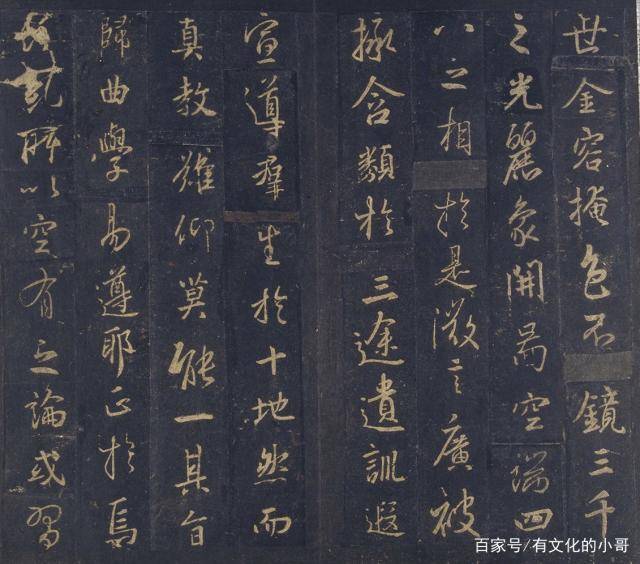 世金容掩色不鏡三千
之光麗象開啚空端四
八之相於是微言廣被
拯含類於三途遺訓遐
宣導羣生於十地然而
真教難仰莫能一其旨
歸曲學易遵耶正於焉
紛糺所以空有之論或習
百家号/有文化的小哥